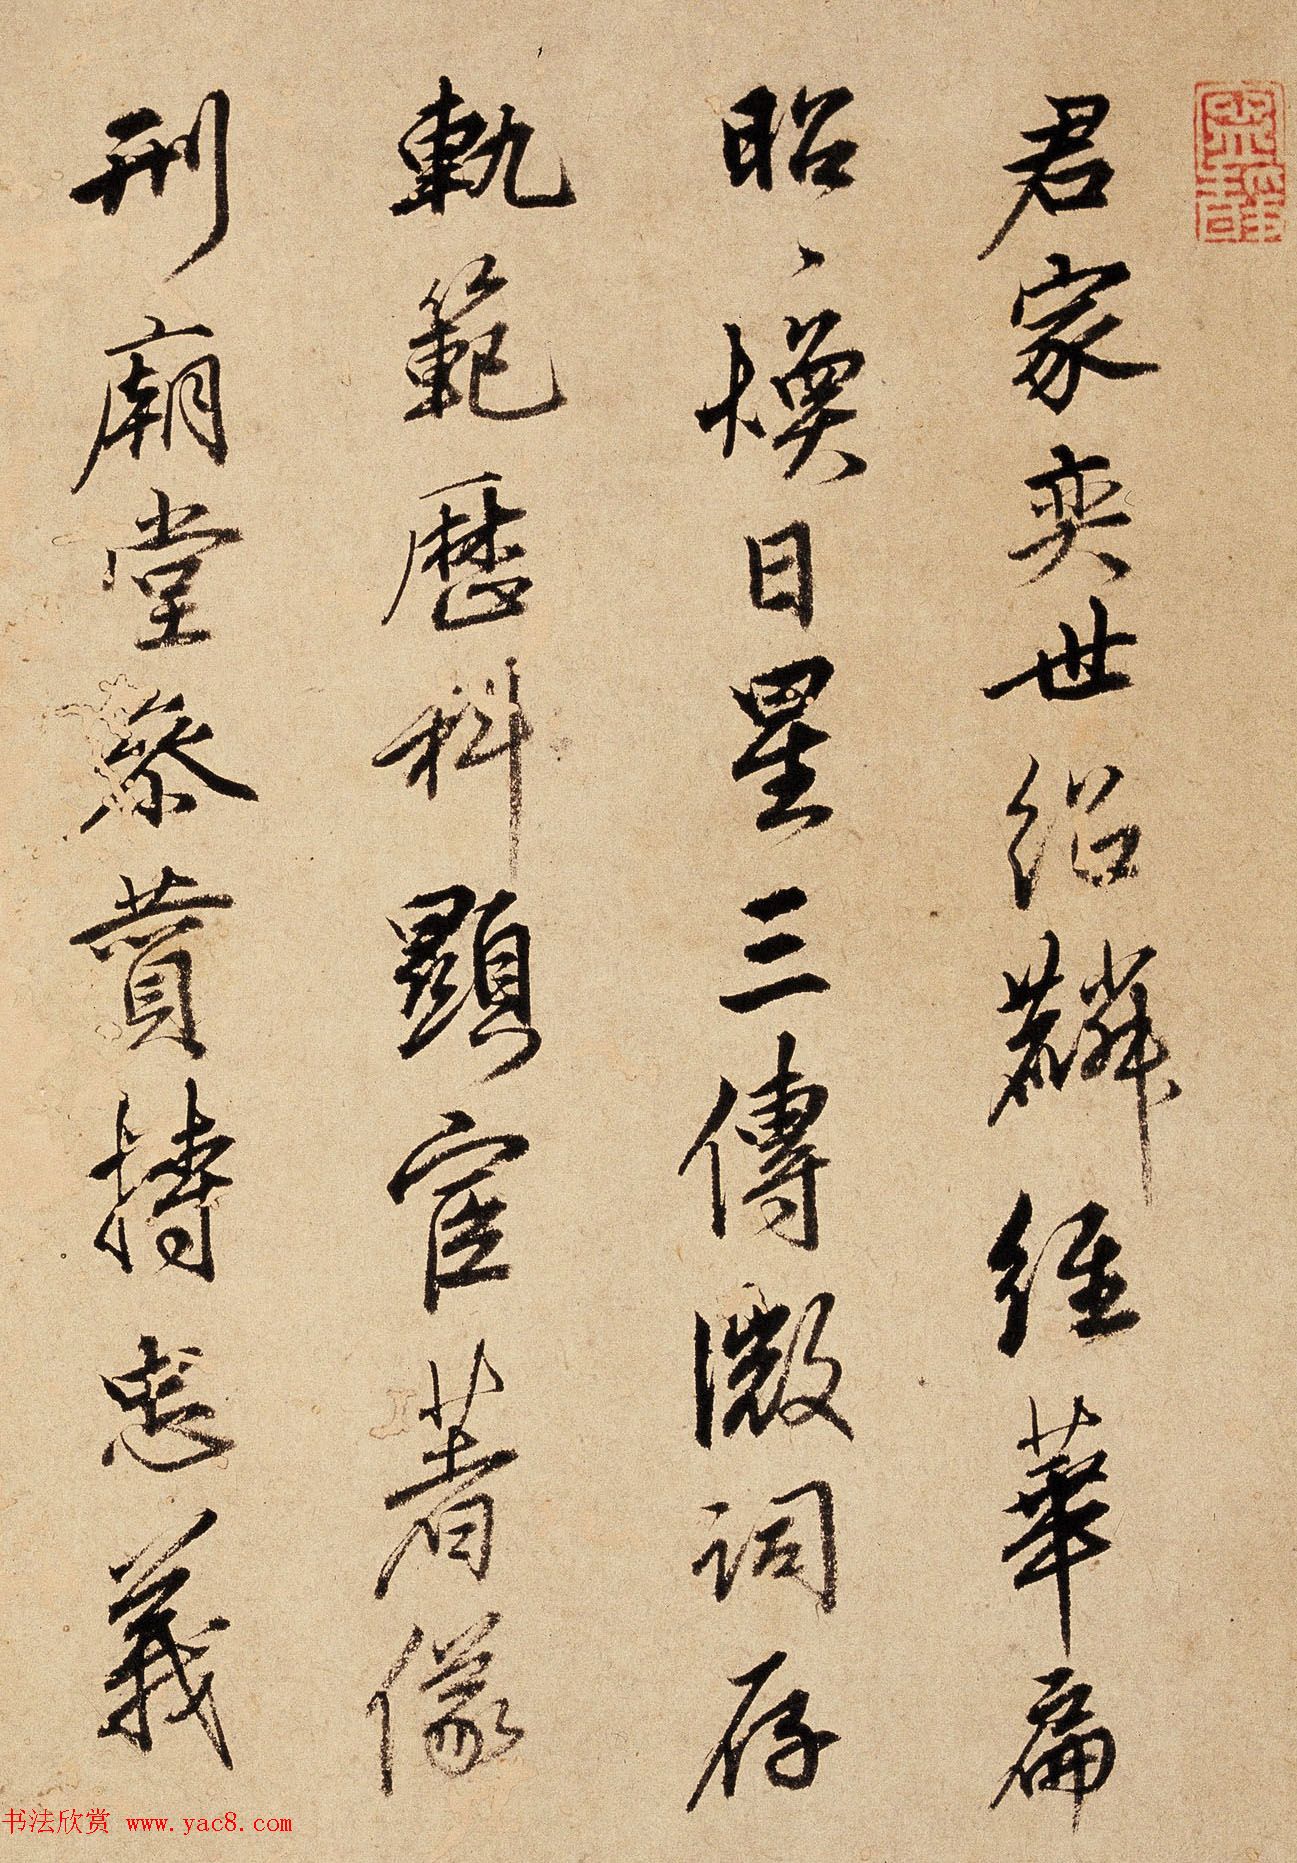 君家奕世紹麟經華扁
昭〻煥日星三傳微詞存
軌範歷科顯宦著儀
刑廟堂參贊持忠義
书法欣赏 www.yac8.com